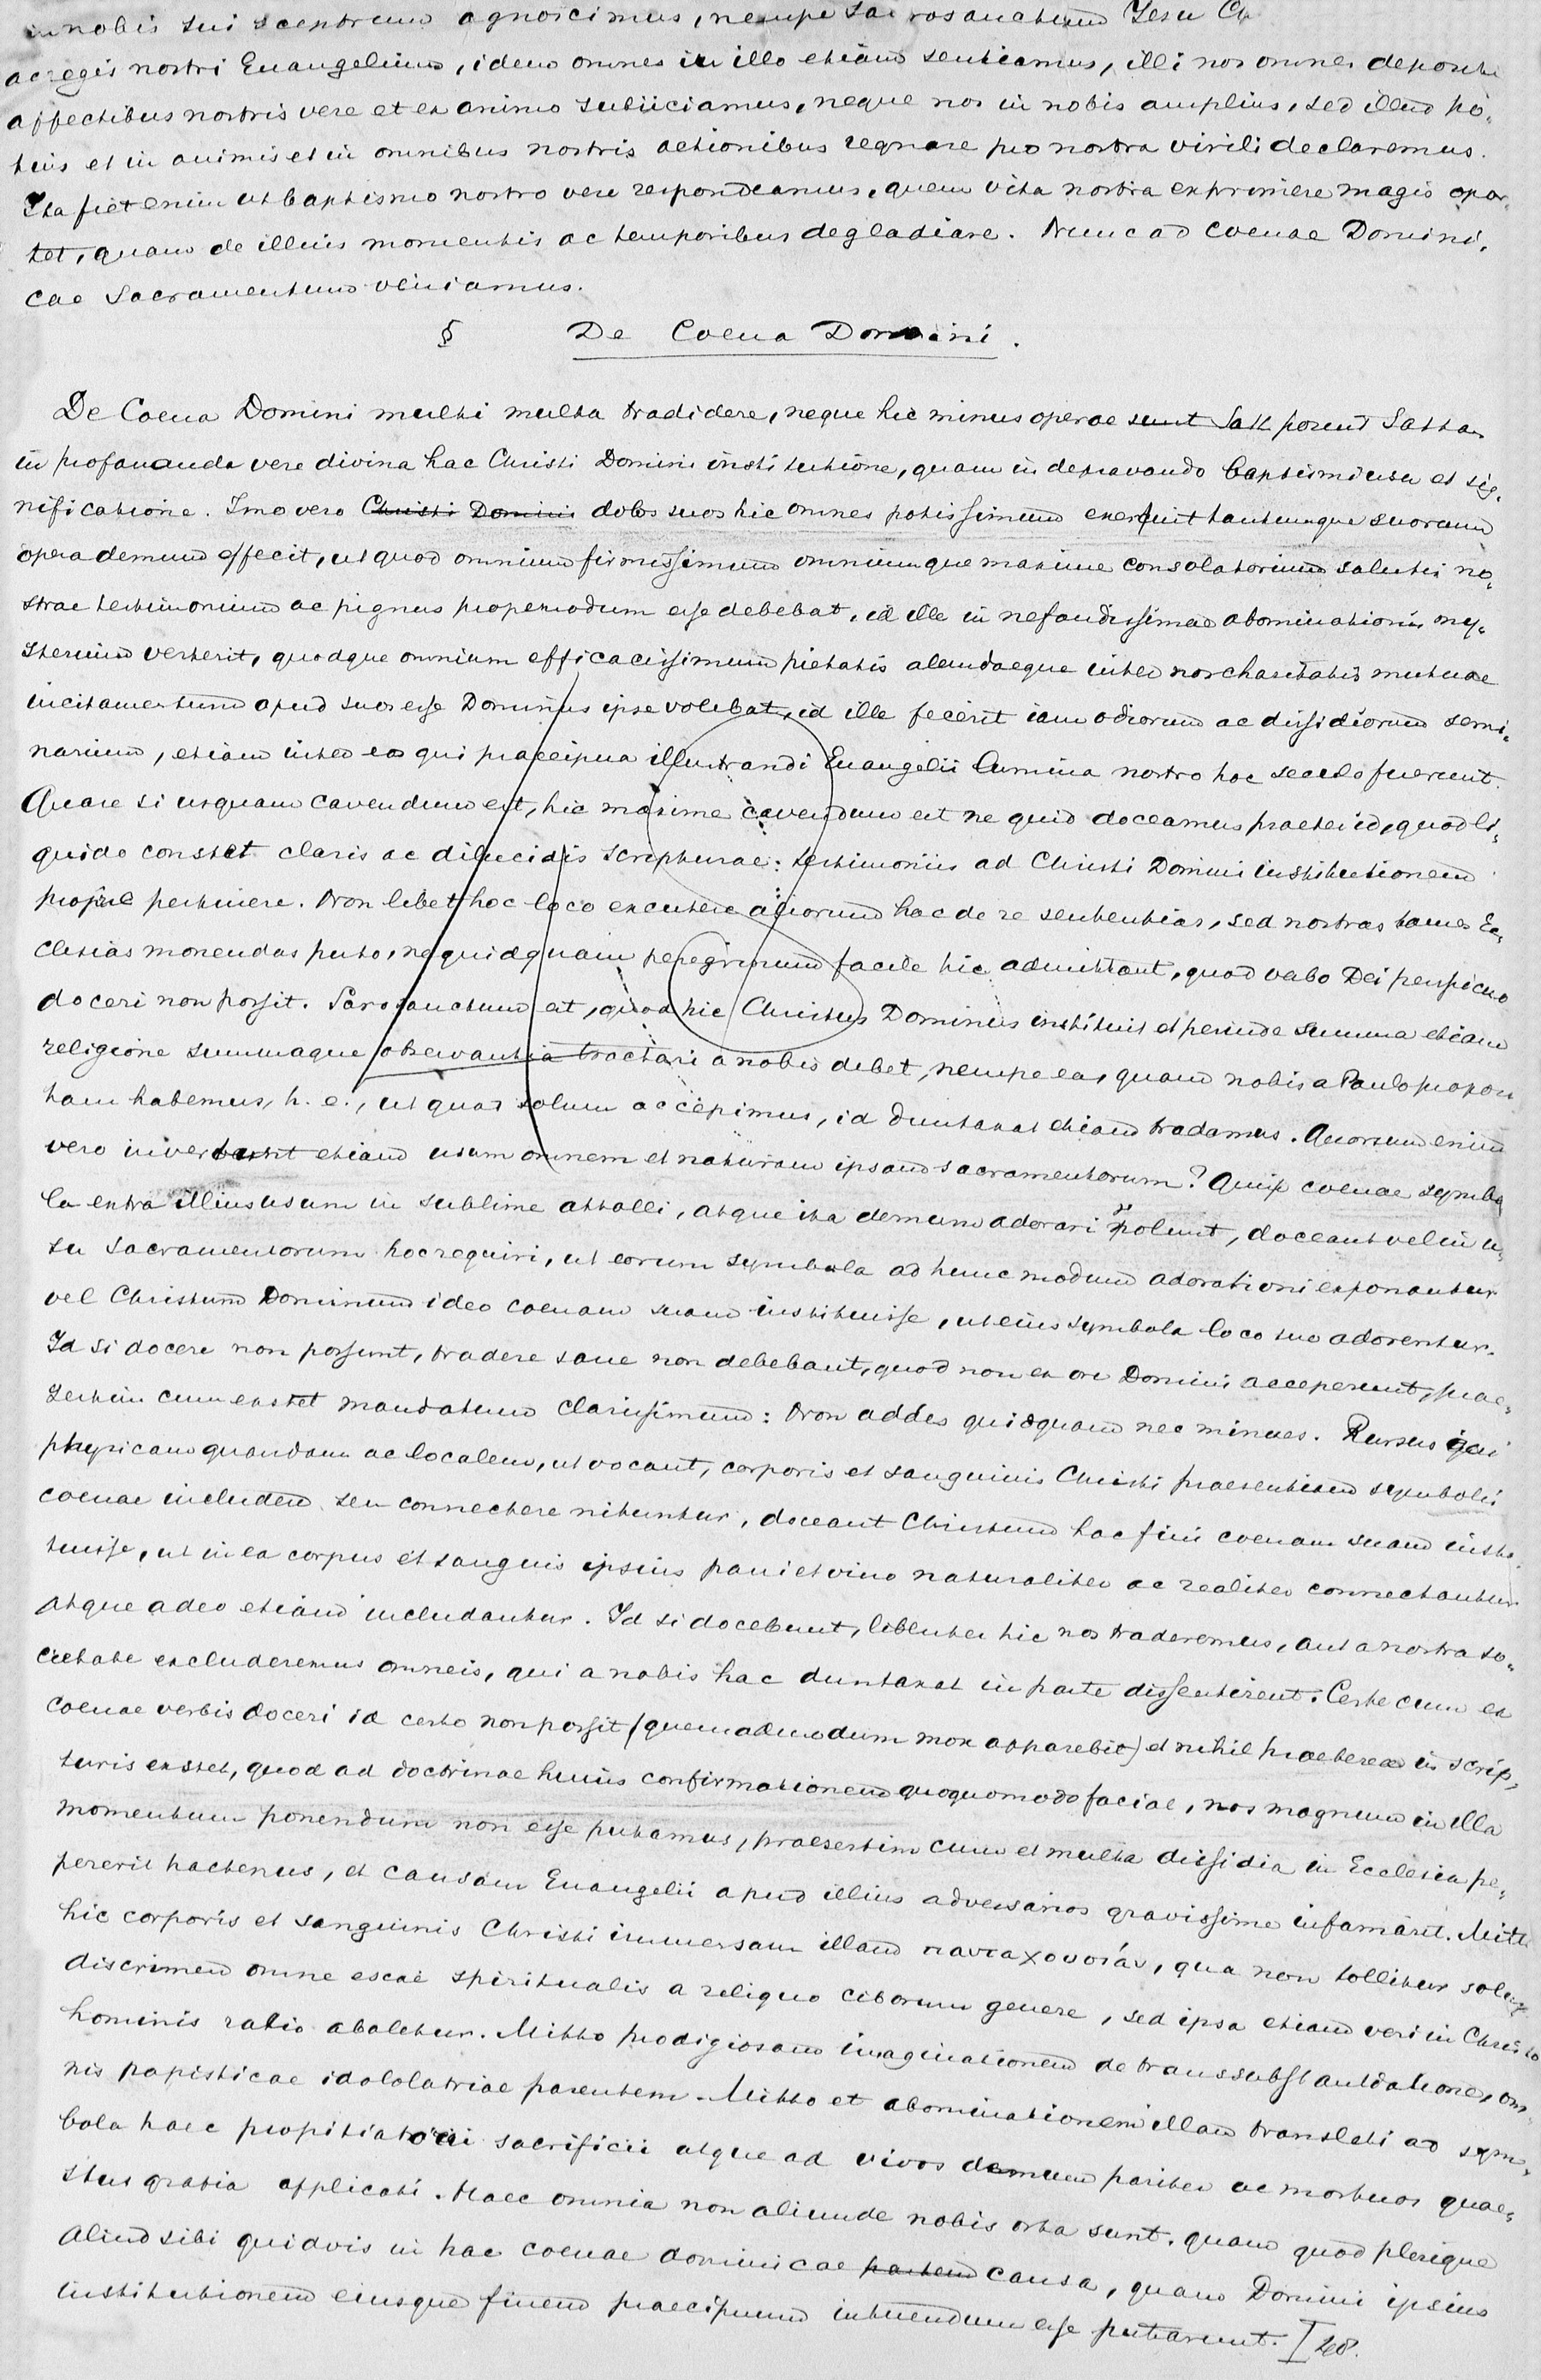 in nobis sui sceptrum agnoscimus, nempe sacrosanctum Jesu Ch
ac regis nostri Euangelium, idem omnes in illo etiam sentiamus, illi nos omnes depositis
affectibus nostris vere et ex animo subiiciamus, neque nos in nobis amplius, sed illud po-
tius et in animis et in omnibus nostris actionibus regnare pro nostra virili declaremus.
Ita fiet enim ut baptismo nostro vere respondeamus, quem vita nostra exprimere magis opor-
tet, quam de illius momentis ac temporibus degladiare. Nunc ad Coenae Domini-
cae Sacramentum veniamus.
§ De Coena Domini.
De Coena Domini multi multa tradidere, neque hic minus operae sunt Satt posuit Sathan
in profananda vere divina hac Christi Domini institutione, quam in depravando baptismi usu et sig-
nificatione. Imo vero Christi Dominis dolos suos hic omnes potissimum exercuit tantumque suorum
opera demum effecit, ut quod omnium firmissimum omniumque maxime consolatorium salutis no-
strae testimonium ac pignus propemodum esse debebat, id ille in nefandissimae abominationis my-
sterium verterit, quodque omnium efficacissimum pietatis alendaeque inter nos charitatis mutuae
incitamentum apud suos esse Dominus ipse volebat, id ille fecerit iam odiorum ac dissidiorum semi-
narium, etiam inter eos qui praecipua illustrandi Euangelii lumina nostro hoc seculo fuerunt.
Quare si usquam cavendum est, hic maxime cavendum est ne quid doceamus praeter id, quod li-
quido constet claris ac dilucidis scripturae testimoniis ad Christi Domini institutionem
proprie pertinere. Non libet hoc loco excutere aliorum hac de re sententias, sed nostras tamen Ec-
clesias monendas puto, ne quidquam peregrinum facile hic admittant, quod verbo Dei perspicuo
doceri non possit. Sacrosanctum est, quod hic Christus Dominus instituit et perinde summa etiam
religione summaque observantia tractari a nobis debet, nempe ea, quam nobis a Paulo proposi
tam habemus, h. e., ut quod solum accepimus, id duntaxat etiam tradamus. Quorsum enim
vero inverterit etiam usum omnem et naturam ipsam sacramentorum? Quip coenae symbo
la extra illius usum in sublime attolli, atque ita demum adorari volunt, doceant vel in u-
su Sacramentorum hoc requiri, ut eorum symbola ad hunc modum adorationi exponantur
vel Christum Dominum ideo coenam suam instituisse, ut eius symbola loco suo adorentur.
Id si docere non possunt, tradere sane non debebant, quod non ex ore Domini acceperunt, prae-
sertim cum extet mandatum clarissimum: Non addes quidquam nec minues. Rursus qui
physicam quandam ac localem, ut vocant, corporis et sanguinis Christi praesentiam symbolis
coenae includere seu connectere nituntur, doceant Christum hac fini coenam suam insti-
tuisse, ut in ea corpus et sanguis ipsius pani et vino naturaliter ac realiter connectantur
atque adeo etiam includantur. Id si docebunt, libenter hic nos traderemus, aut a nostra so-
cietate excluderemus omneis, qui a nobis hac duntaxat in parte dissentirent. Certe cum ex
coenae verbis doceri id certo non possit (quemadmodum mox apparebit) et nihil praeterea in scrip-
turis extet, quod ad doctrinae huius confirmationem quoquomodo faciat, nos magnum in illa
momentum ponendum non esse putamus, praesertim cum et multa dissidia in Ecclesia pe-
pererit hactenus, et causam Euangelii apud illius adversarios gravissime infamarit. Mitto
hic corporis et sanguinis Christi immensam illam πανταχουσίαν, qua non tollitur solum
discrimen omne escae spiritualis a reliquo ciborum genere, sed ipsa etiam veri in Christo
hominis ratio aboletur. Mitto prodigiosam imaginationem de transsubstantiatione, om-
nis papisticae idololatriae parentem. Mitto et abominationem illam translati ad sym-
bola haec propitiatorii sacrificii atque ad vivos demum pariter ac mortuos quae-
stus gratia applicati. Haec omnia non aliunde nobis orta sunt, quam quod plerique
aliud sibi quidvis in hac coenae dominicae partem causa, quam Domini ipsius
institutionem eiusque finem praecipuum intuendum esse putarunt. I 48.